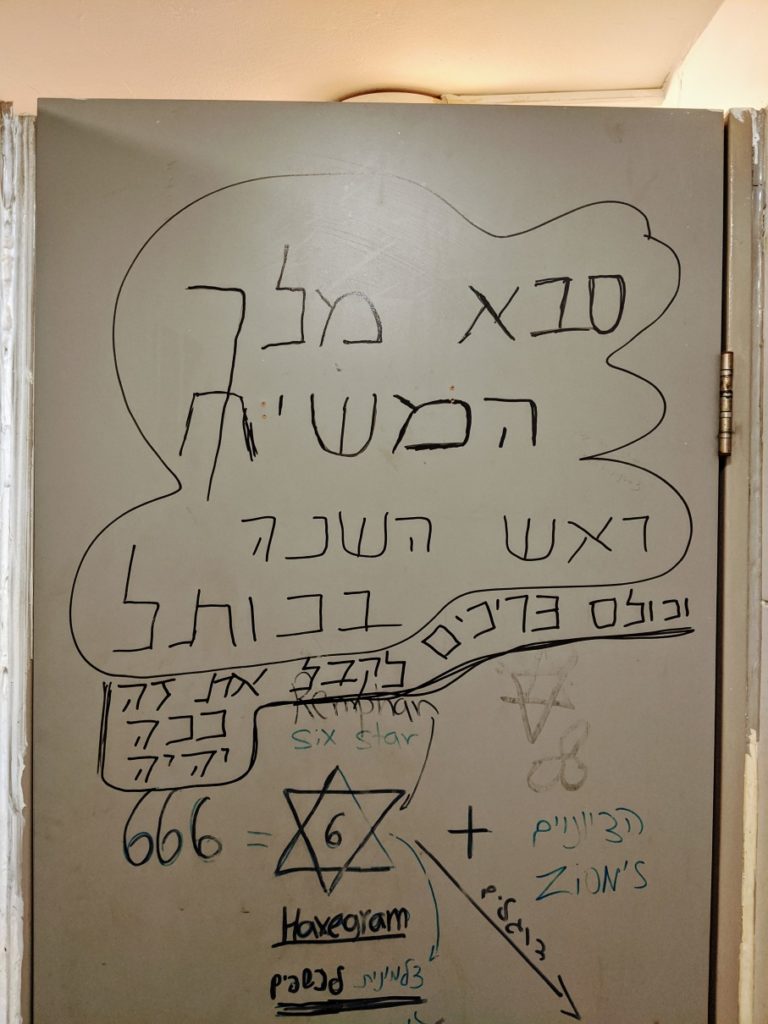 סבא מלך
המשיח
ראש השנה
בכותל
וכולם צריכים
לקבל את זה
ככה
יהיה
Remphan
six star
666 = 6 + הציונים
Zion's
Haxegram
לכשפים